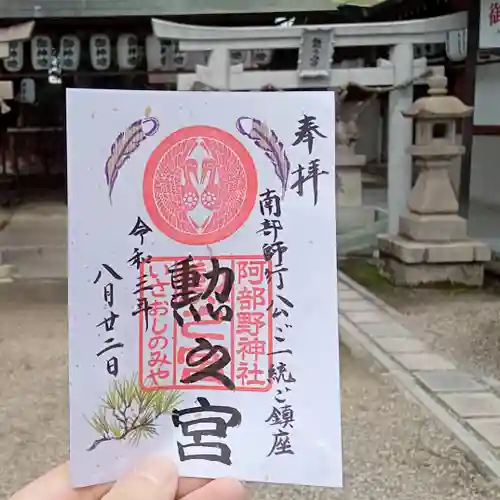 奉拝
南部師行公ご一統ご鎮座
阿部野神社
勲之宮
いさおしのみや
令和三年
八月廿二日